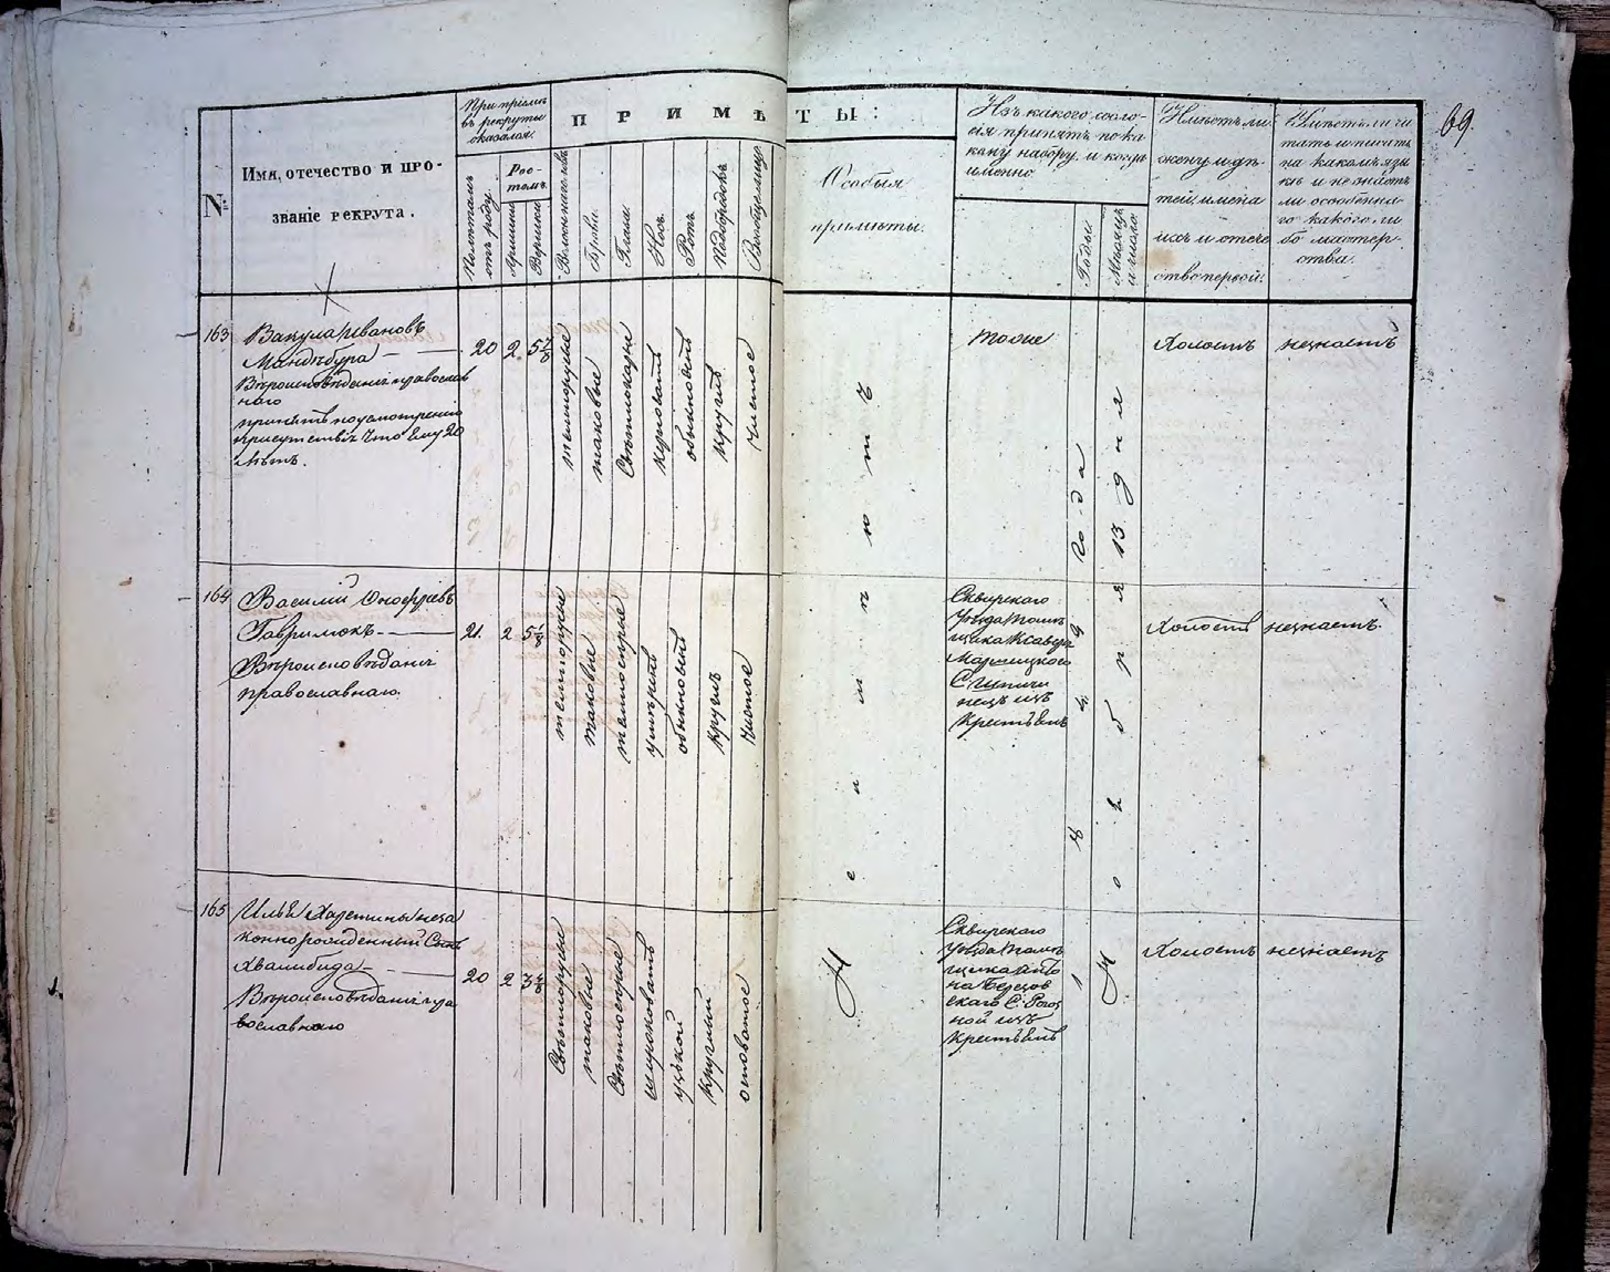 69.
№
Имя, отечество и про-
званіе рекрута.
При пріемѣ
въ рекруты
оказался:
Полѣтамъ
отъ роду.
Рос-
томъ.
Аршины
Вершки
ПРИМѢТЫ:
Брови.
Глаза.
Носъ.
Ротъ.
Подбородокъ
Вообще лицо
Особыя
примѣты.
Изъ какого сосло-
сія принятъ по ка
кому набору и когда
именно.
Годы.
Мѣсяцъ
и число
Имѣетъ ли
жену и дѣ-
тей, имена
ихъ и отече
ство первой.
Умѣетъ ли чи
тать и писать
на какомъ язы
кѣ и не знаетъ
ли особенна-
го какого ли
бо мастер-
ства.
163
Вакула Ивановъ
Мандыбура
Вѣроисповѣданія православ
наго
принятъ по усмотренію
присутствія что ему 20
лѣтъ.
20
2
5 7/8
темнорусые
таковые
Свѣтлокаріе
обыкновенъ
круглъ
чистое
тоже
Холостъ
незнаетъ
164
Василій Онофріевъ
Гаврилюкъ
Вѣроисповѣданія
православнаго.
21.
2
5 1/8
темнорусые
таковые
темносерые
умѣренъ
обыкновенъ
круглъ
чистое
Сквирскаго
Уѣзда Помѣ
щика
крестьянъ
Холостъ
незнаетъ.
165
Илья
коннорожденный Сынъ
Хвалибида
Вѣроисповѣданія пра
вославнаго
20
2
3 4/8
Свѣтлорусые
таковые
Свѣтлосерые
широковатъ
узкой
круглый
осповатое
Сквирскаго
Уѣзда Помѣ
щика Анто
на Березов
скаго С: Рогоз
ной изъ
крестьянъ
Холостъ
незнаетъ
Не имѣетъ
184 9 года
Ноября 13 дня